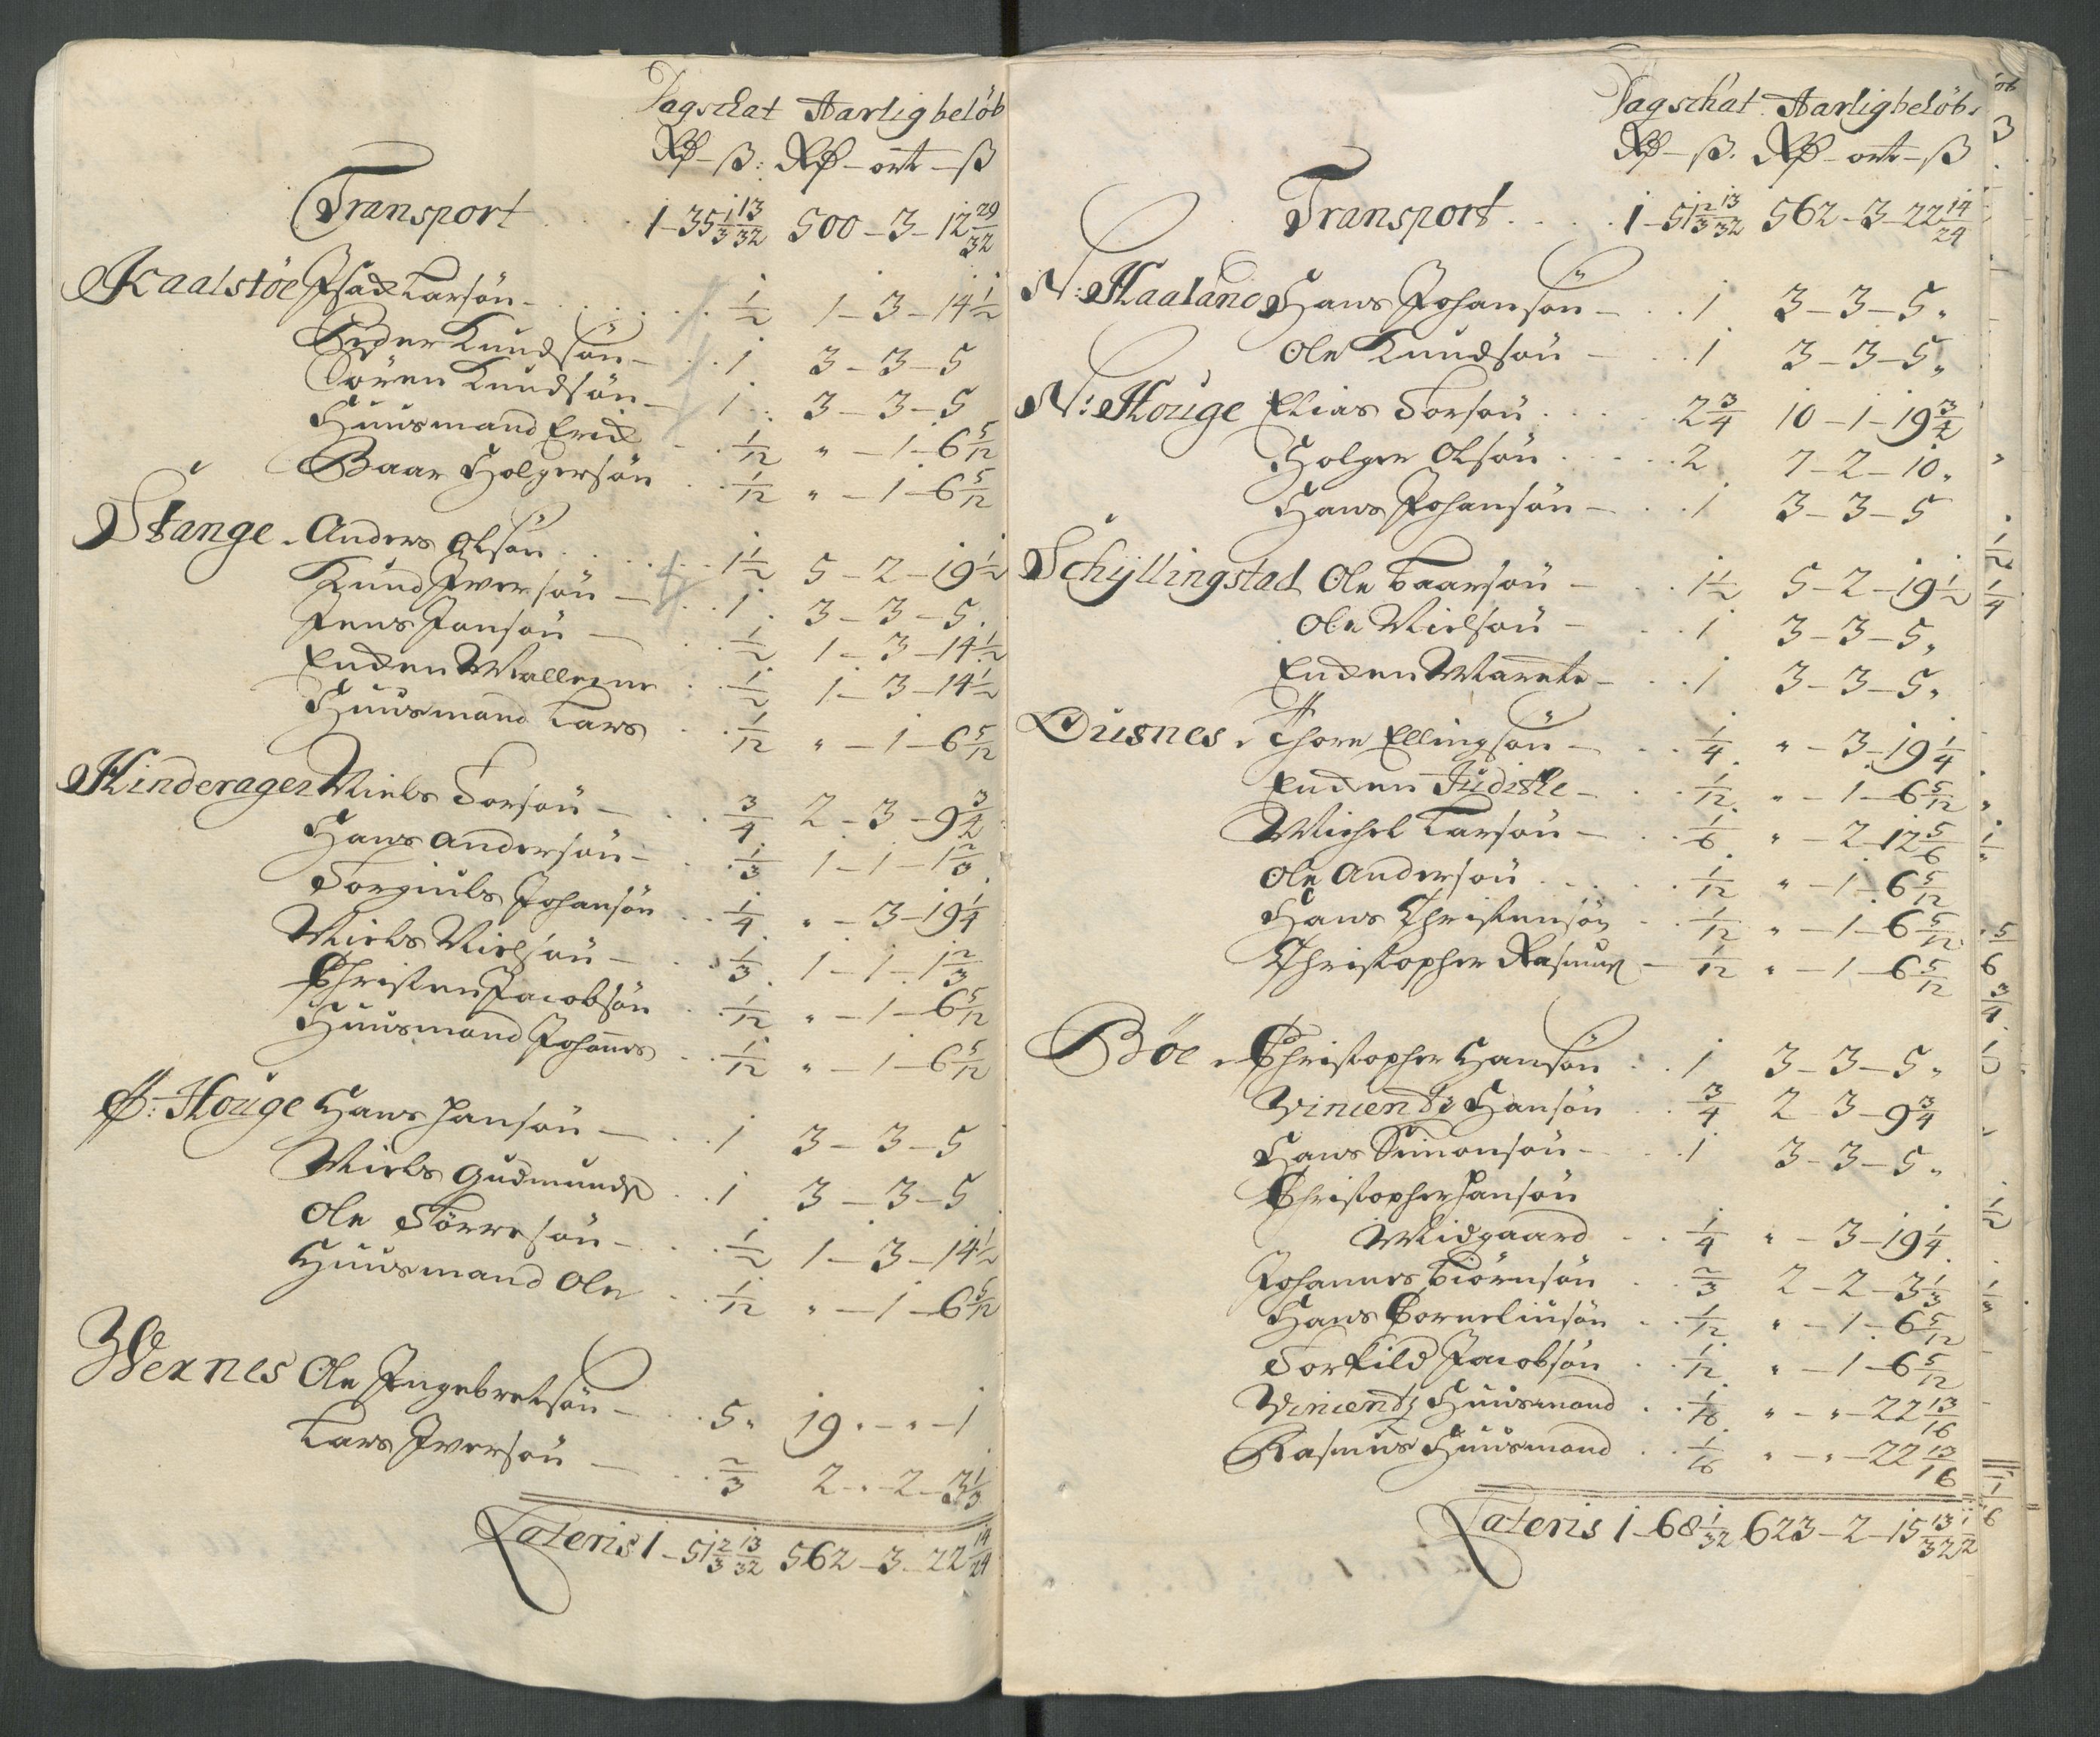 Dagschat Aarlig belöb
Rd - ß: Rd - ort - ß
Transport . . . 1 - 35 1/3 13/32 500 - 3 - 12 29/32
Kaalstöe Isach Larsön - . . . 1/2 1 - 3 - 14 1/2
Peder Knudsön - . . 1 3 - 3 - 5
Sören Knudsön - . 1 . 3 - 3 - 5
Huusmand Erich - . 1/12 " - 1 - 6 5/12
Baar Holgersön . . 1/12 " - 1 - 6 5/12
Stange . Anders Olsön . . . . 1 1/2 5 - 2 - 19 1/2
Knud Iversön - . . 1 . 3 - 3 - 5 .
Jens Jansön - . . 1/2 1 - 3 - 14 1/2
Enchen Mallene . 1/2 1 - 3 - 14 1/2
Huusmand Lars . . 1/12 " - 1 - 6 5/12
Hinderager Niels Torsön - . . 3/4 2 - 3 - 9 3/4
Hans Andersön - . . 1/3 1 - 1 - 1 2/3
Torgiuls Johansön . . 1/4 " - 3 - 19 1/4
Niels Nielsön - . 1/3 1 - 1 - 1 2/3
Christen Jacobsön . . 1/12 " - 1 - 6 5/12
Huusmand Johannes . . 1/12 " - 1 - 6 5/12
S: Houge Hans Hansön - . . 1 3 - 3 - 5
Niels Gudmunds . . 1 3 - 3 - 5
Ole Törresön - . . 1/2 1 - 3 - 14 1/2
Huusmand Ole . . 1/12 " - 1 - 6 5/12
Wexnes Ole Ingebretsön - . . 5 " 19 . - " - 1
Lars Iversön - . . 2/3 2 . - 2 - 3 1/3
Lateris 1 - 51 2/3 13/32 562 - 3 - 22 14/24
Dagschat Aarlig belöb.
Rd - ß. Rd - ort - ß
Transport . . . . 1 - 51 2/3 13/32 562 - 3 - 22 14/24
N: Haaland Hans Johansön - . . 1 3 - 3 - 5 "
Ole Knudsön - . . 1 3 - 3 - 5 "
N: Houge Elias Torsön . . . . 2 3/4 10 - 1 - 19 3/4
Holger Olsön . . . . 2 7 - 2 - 10 "
Hans Johansön - . . 1 3 - 3 - 5
Schyllingstad Ole Baarsön - . . 1 1/2 5 - 2 - 19 1/2
Ole Nielsön - . . 1 3 - 3 - 5 "
Enchen Marete - . . 1 3 - 3 - 5 "
Dusnes . Thore Ellingsön - . . 1/4 " - 3 - 19 1/4
Enchen Judithe - . . 1/12 " - 1 - 6 5/12
Michel Larsön - . . 1/6 " - 2 - 12 5/6
Ole Andersön . . . . 1/12 " - 1 - 6 5/12
Hans Christensön . . 1/12 " - 1 - 6 5/12
Christopher Rasmus - 1/12 " - 1 - 6 5/12
Böe . Christopher Hansön . . 1 3 - 3 - 5 "
Vincendtz Hansön . . 3/4 2 - 3 - 9 3/4
Hans Simonsön - . . 1 3 - 3 - 5 "
Christopher Hansön
Midgaard . . 1/4 " - 3 - 19 1/4
Johannes Biörnsön . . 2/3 2 - 2 - 3 1/3
Hans Corneliusön . . 1/12 " - 1 - 6 5/12
Torkild Jacobsön . . 1/12 " - 1 - 6 5/12
Vincendtz Huusmand . . 1/16 " - " - 22 13/16
Rasmus Huusmand . . 1/16 " - " - 22 13/16
Lateris 1 - 68 1/32 623 - 2 - 15 13/32 1/2